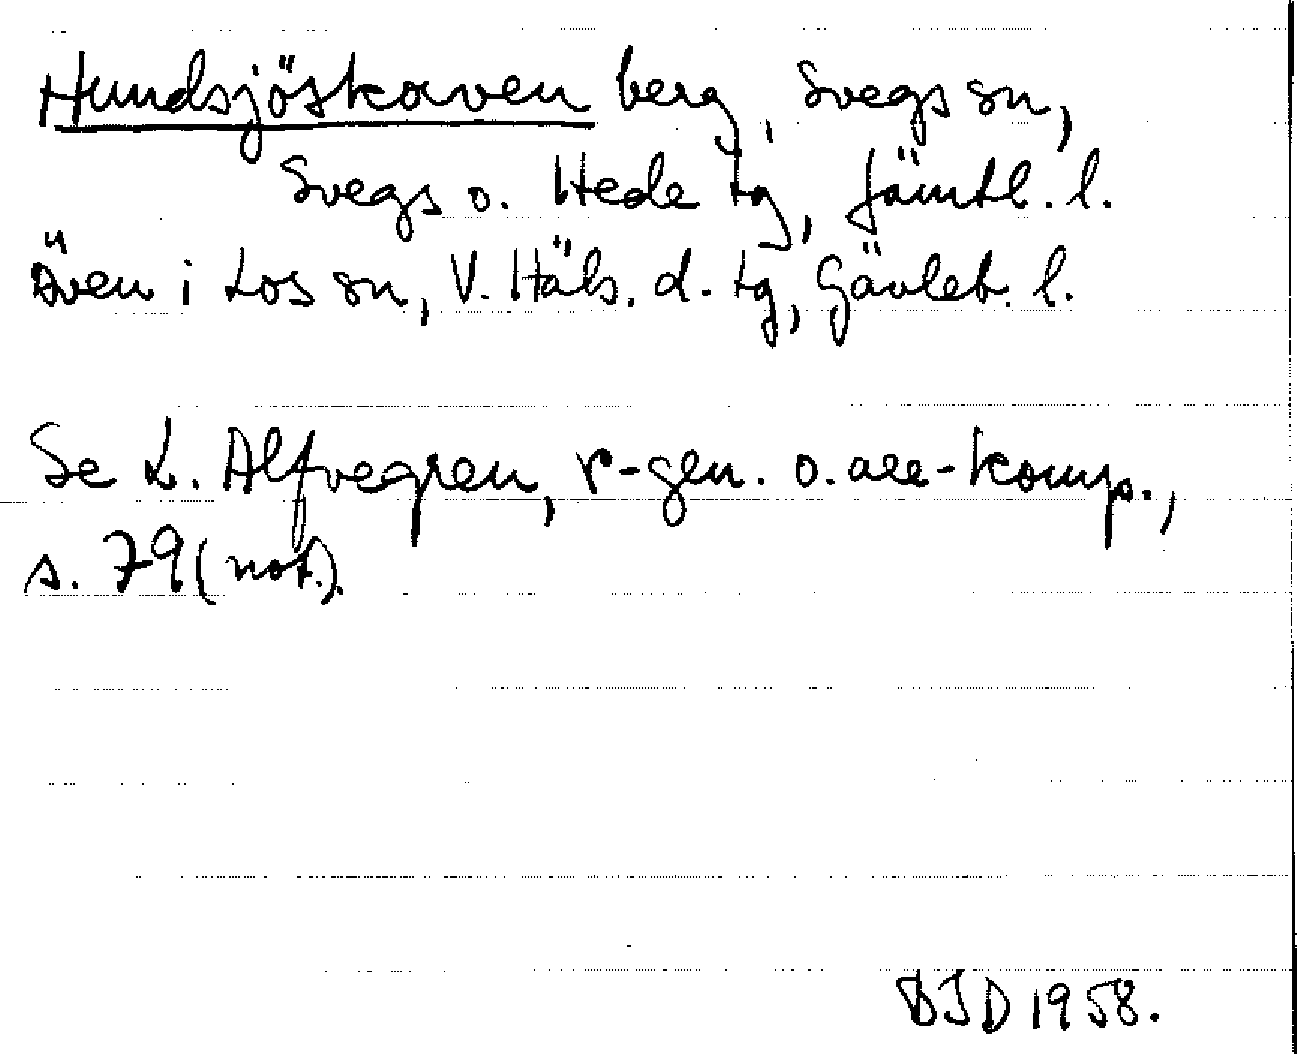 Hundsjöskaven berg, Svegs sn,
Svegs o. Hede tg, Jämtl. l.
Även i Los sn, V. Häls. d. tg, Gävleb. l.
Se L. Alfvegren, r-gen. o. all-komp.,
s. 79 (not.).
DJD 1958.